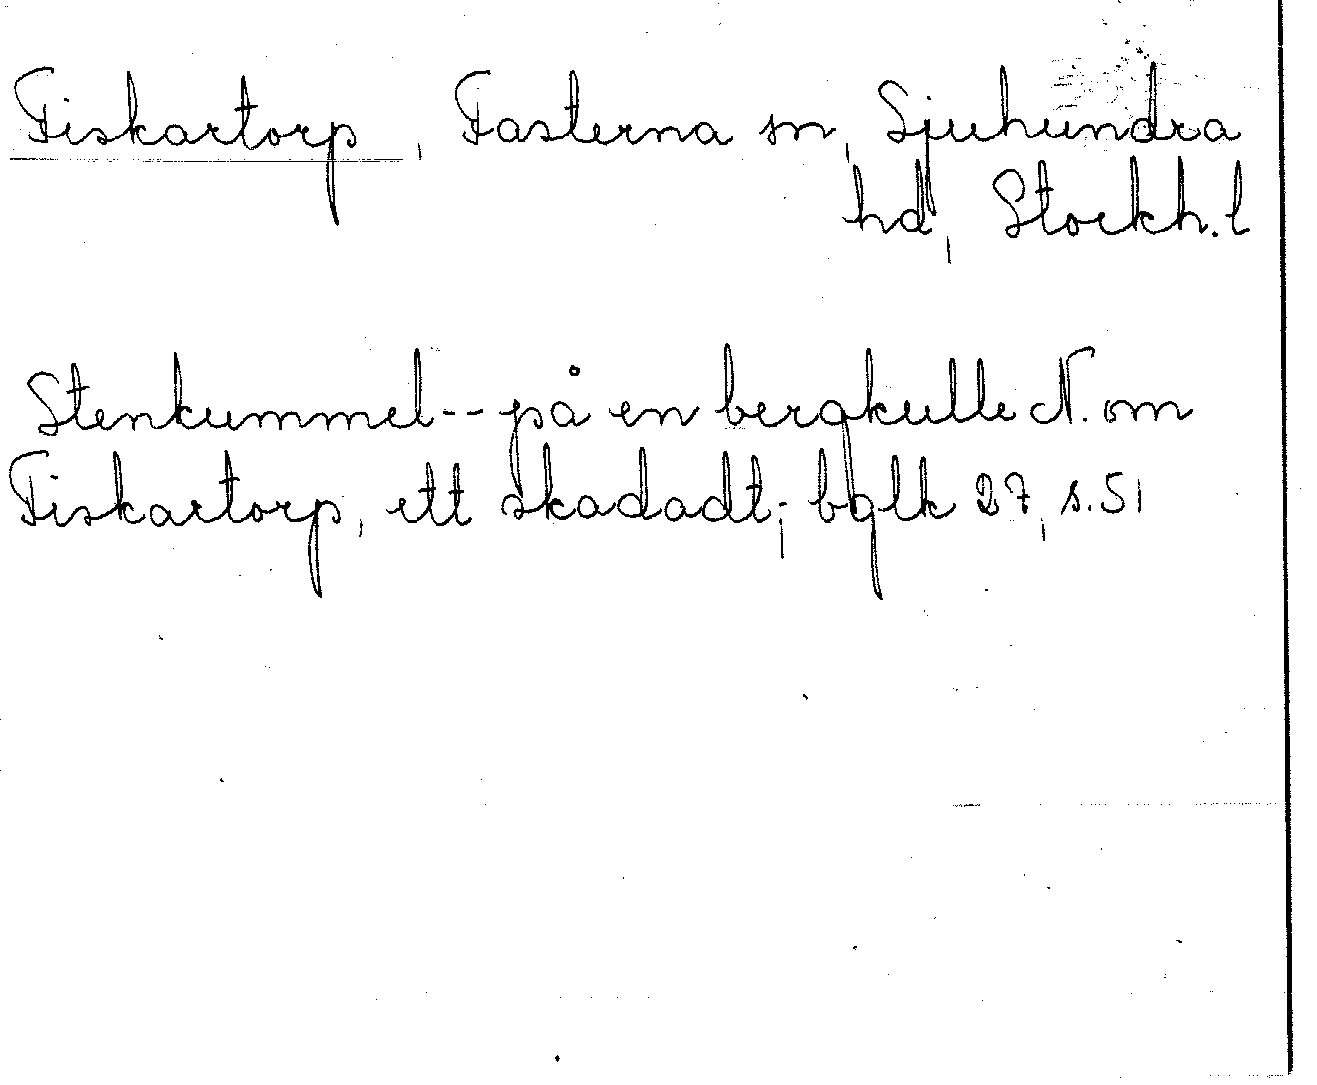 Fiskartorp, Fasterna sn, Sjuhundra
hd, Stockh. l
Stenkummel -- på en bergkulle N. om
Fiskartorp, ett skadadt; bglk 27, s. 51